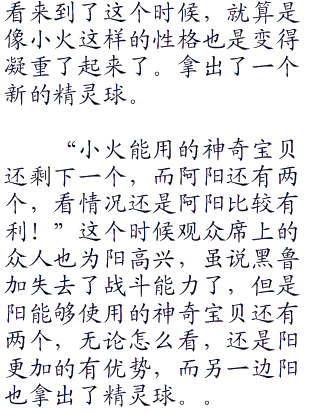 看来到了这个时候，就算是
像小火这样的性格也是变得
凝重了起来了。拿出了一个
新的精灵球。
“小火能用的神奇宝贝
还剩下一个，而阿阳还有两
个，看情况还是阿阳比较有
利！”这个时候观众席上的
众人也为阳高兴，虽说黑鲁
加失去了战斗能力了，但是
阳能够使用的神奇宝贝还有
两个，无论怎么看，还是阳
更加的有优势，而另一边阳
也拿出了精灵球。。